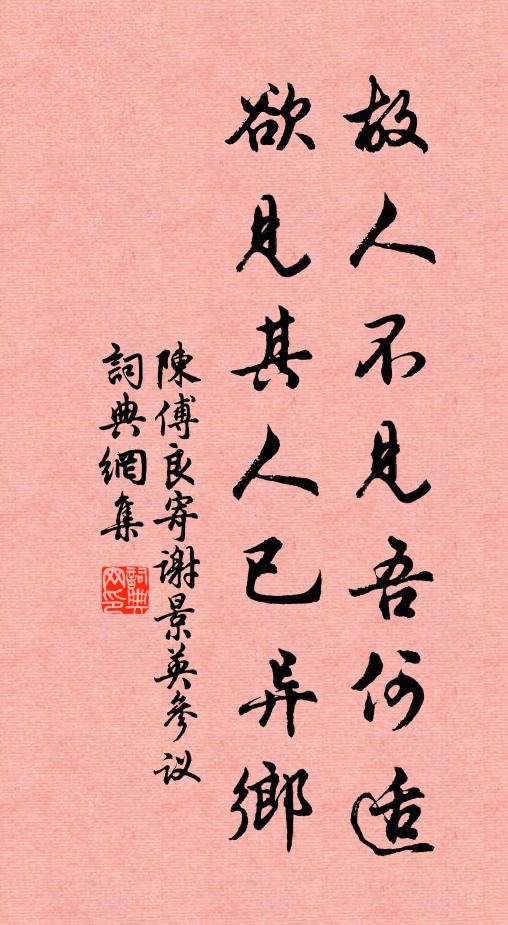 故人不見吾何适
欲見其人已异鄉
陳傅良寄谢景英參议
詞典網集
詞典网印